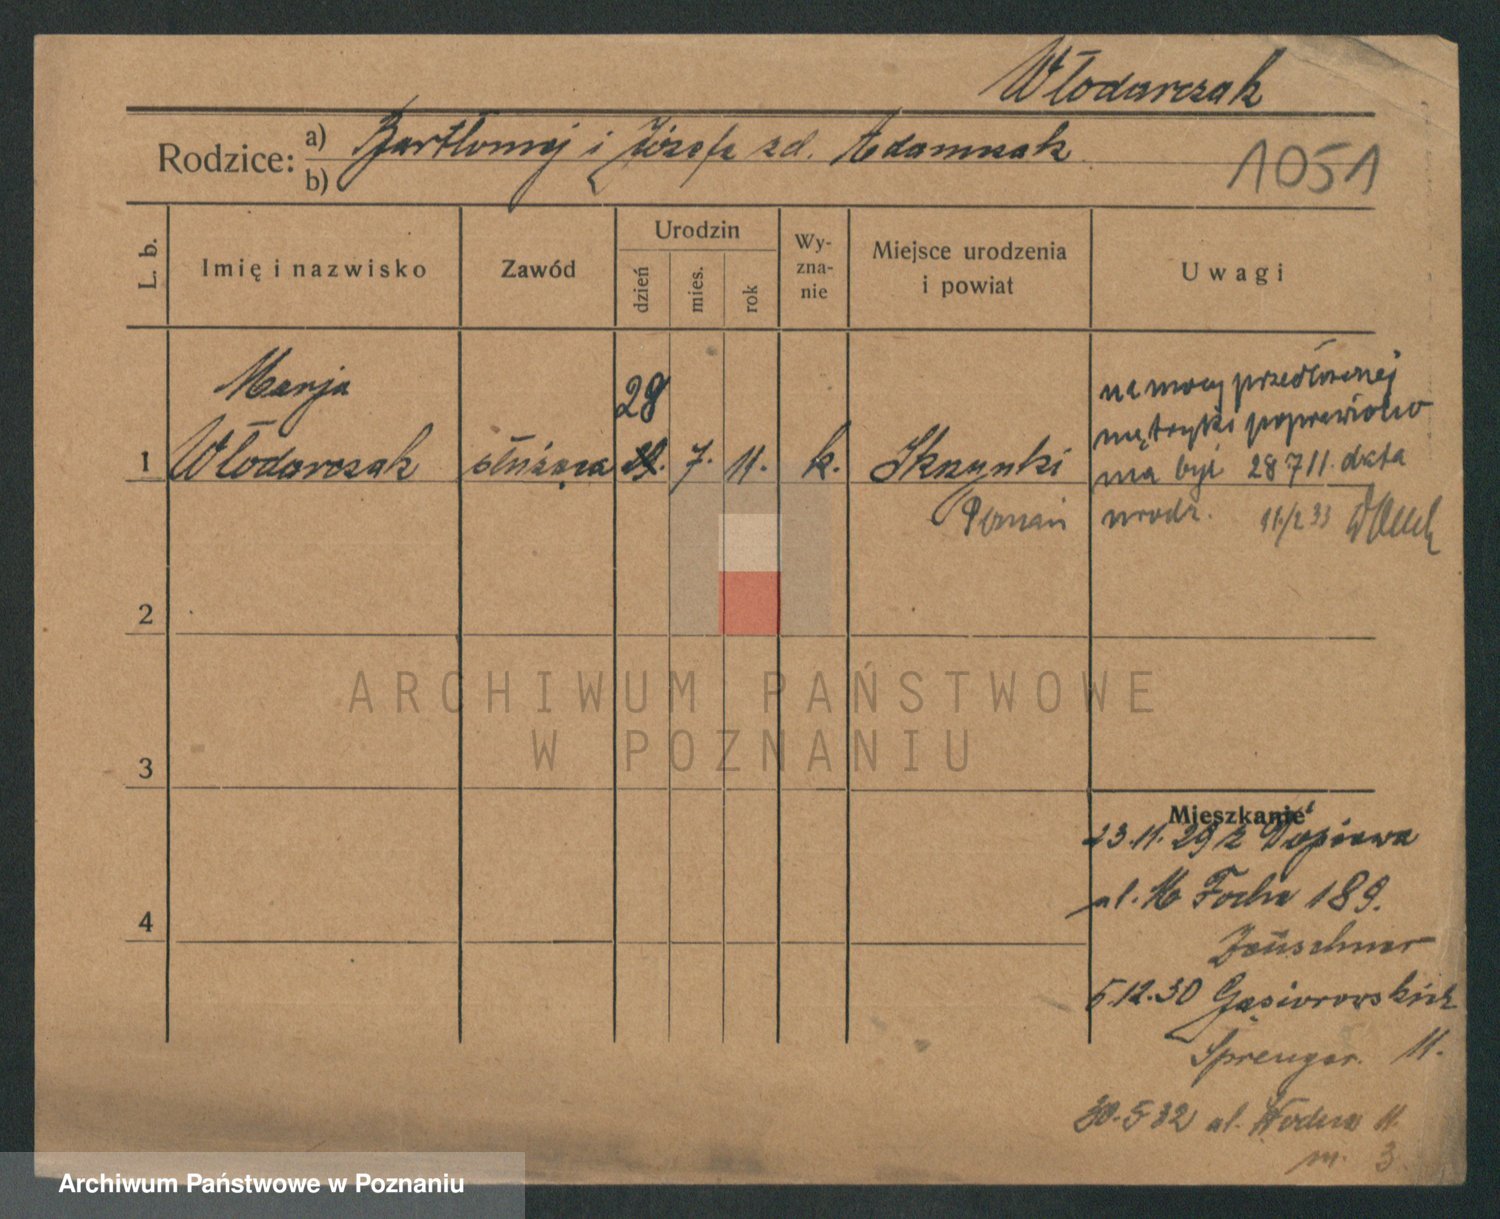 Włodarczak
Rodzice: a) Bartłomiej i Józefa zd. Adamczak
b)
1051
L. b.
Imię i nazwisko
Zawód
Urodzin
dzień
mies.
rok
Wy-
zna-
nie
Miejsce urodzenia
i powiat
Uwagi
Marja
28
1 Włodarczak służąca 7. 11. k. Skrzynki
Poznań
na mocy przedłożonej
metryki poprawiono
ma być 28 7 11. data
urodz. 11/2 33
2
3
4
Mieszkanie
23.11.29 z Dopiewa
ul. M Focha 189.
Zeuschner
5.12.30 Gąsiorowskich
Sprenger. 11.
30.5 32 ul. Wodna 11
m. 3.
ARCHIWUM PAŃSTWOWE
W POZNANIU
Archiwum Państwowe w Poznaniu